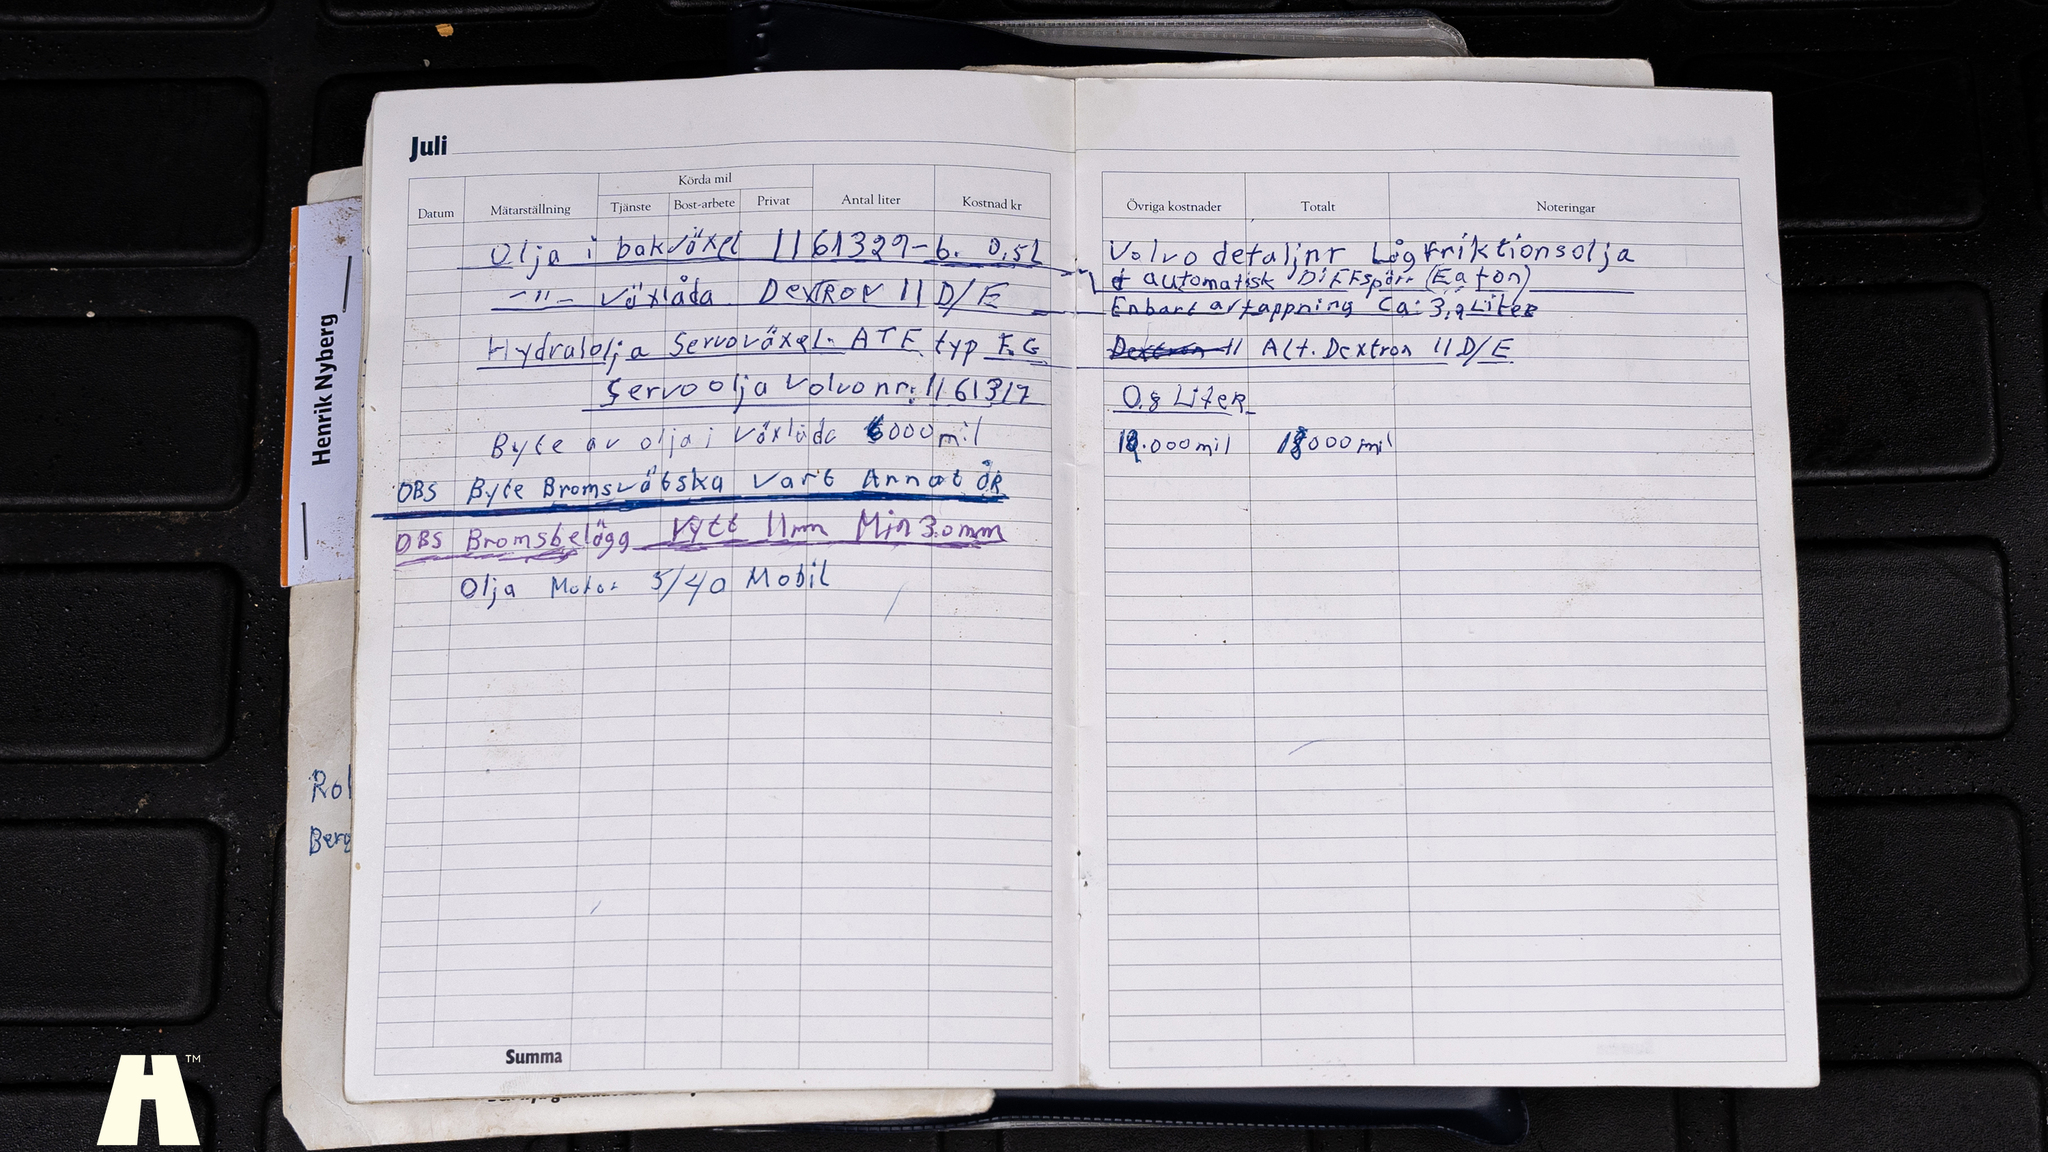 Juli
Datum Mätarställning Körda mil Tjänste Bost-arbete Privat Antal liter Kostnad kr
Övriga kostnader Totalt Noteringar
Olja i bakväxel 1161329-6. 0,5L
Volvo detaljnr Lågfriktionsolja
automatisk Diffspärr (Eaton)
-"- växlåda Dextron II D/E
Enbart avtappning Ca: Liter
Hydralolja Servoväxel. ATF typ
Dextron II Alt. Dextron II D/E
Servoolja Volvo nr: 
0.8 Liter
Byte av olja i växlåda 6000 mil
000 mil 000 mil
OBS Byte Bromsvätska vart Annat ÅR
OBS Bromsbelägg Nytt 11mm Min 3.0mm
Olja Motor 5/40 Mobil
Summa
Henrik Nyberg
H™